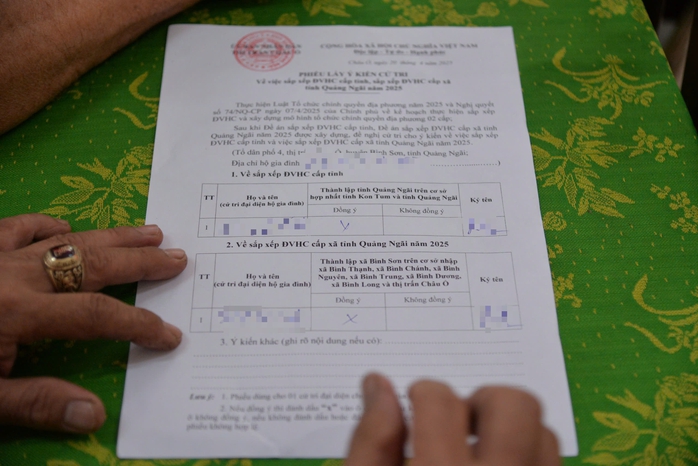 CỘNG HÒA XÃ HỘI CHỦ NGHĨA VIỆT NAM
Độc lập - Tự do - Hạnh phúc
PHIẾU LẤY Ý KIẾN CỬ TRI
Về việc sắp xếp ĐVHC cấp tỉnh, sắp xếp ĐVHC cấp xã
tỉnh Quảng Ngãi năm 2025
Thực hiện Luật Tổ chức chính quyền địa phương năm 2025 và Nghị quyết
số 74/NQ-CP ngày 07/4/2025 của Chính phủ về kế hoạch thực hiện sắp xếp
ĐVHC và xây dựng mô hình tổ chức chính quyền địa phương 02 cấp;
Sau khi Đề án sắp xếp ĐVHC cấp tỉnh, Đề án sắp xếp ĐVHC cấp xã tỉnh
Quảng Ngãi năm 2025 được xây dựng, đề nghị cử tri cho ý kiến về việc sắp xếp
ĐVHC cấp tỉnh và việc sắp xếp ĐVHC cấp xã tỉnh Quảng Ngãi năm 2025.
(Tổ dân phố 4, thị Bình Sơn, tỉnh Quảng Ngãi;
Địa chỉ hộ gia đình
1. Về sắp xếp ĐVHC cấp tỉnh
TT
Họ và tên
(cử tri đại diện hộ gia đình)
Thành lập tỉnh Quảng Ngãi trên cơ sở
hợp nhất tỉnh Kon Tum và tỉnh Quảng Ngãi
Ký tên
Đồng ý
Không đồng ý
1
2. Về sắp xếp ĐVHC cấp xã tỉnh Quảng Ngãi năm 2025
TT
Họ và tên
(cử tri đại diện hộ gia đình)
Thành lập xã Bình Sơn trên cơ sở nhập
xã Bình Thạnh, xã Bình Chánh, xã Bình
Nguyên, xã Bình Trung, xã Bình Dương,
xã Bình Long và thị trấn Châu Ổ
Ký tên
Đồng ý
Không đồng ý
1
X
3. Ý kiến khác (ghi rõ nội dung nếu có):
Lưu ý: 1. Phiếu dùng cho 01 cử tri đại diện
2. Nếu đồng ý thì đánh dấu "X" vào
ô không đồng ý, nếu không đánh dấu hoặc
phiếu không hợp lệ.